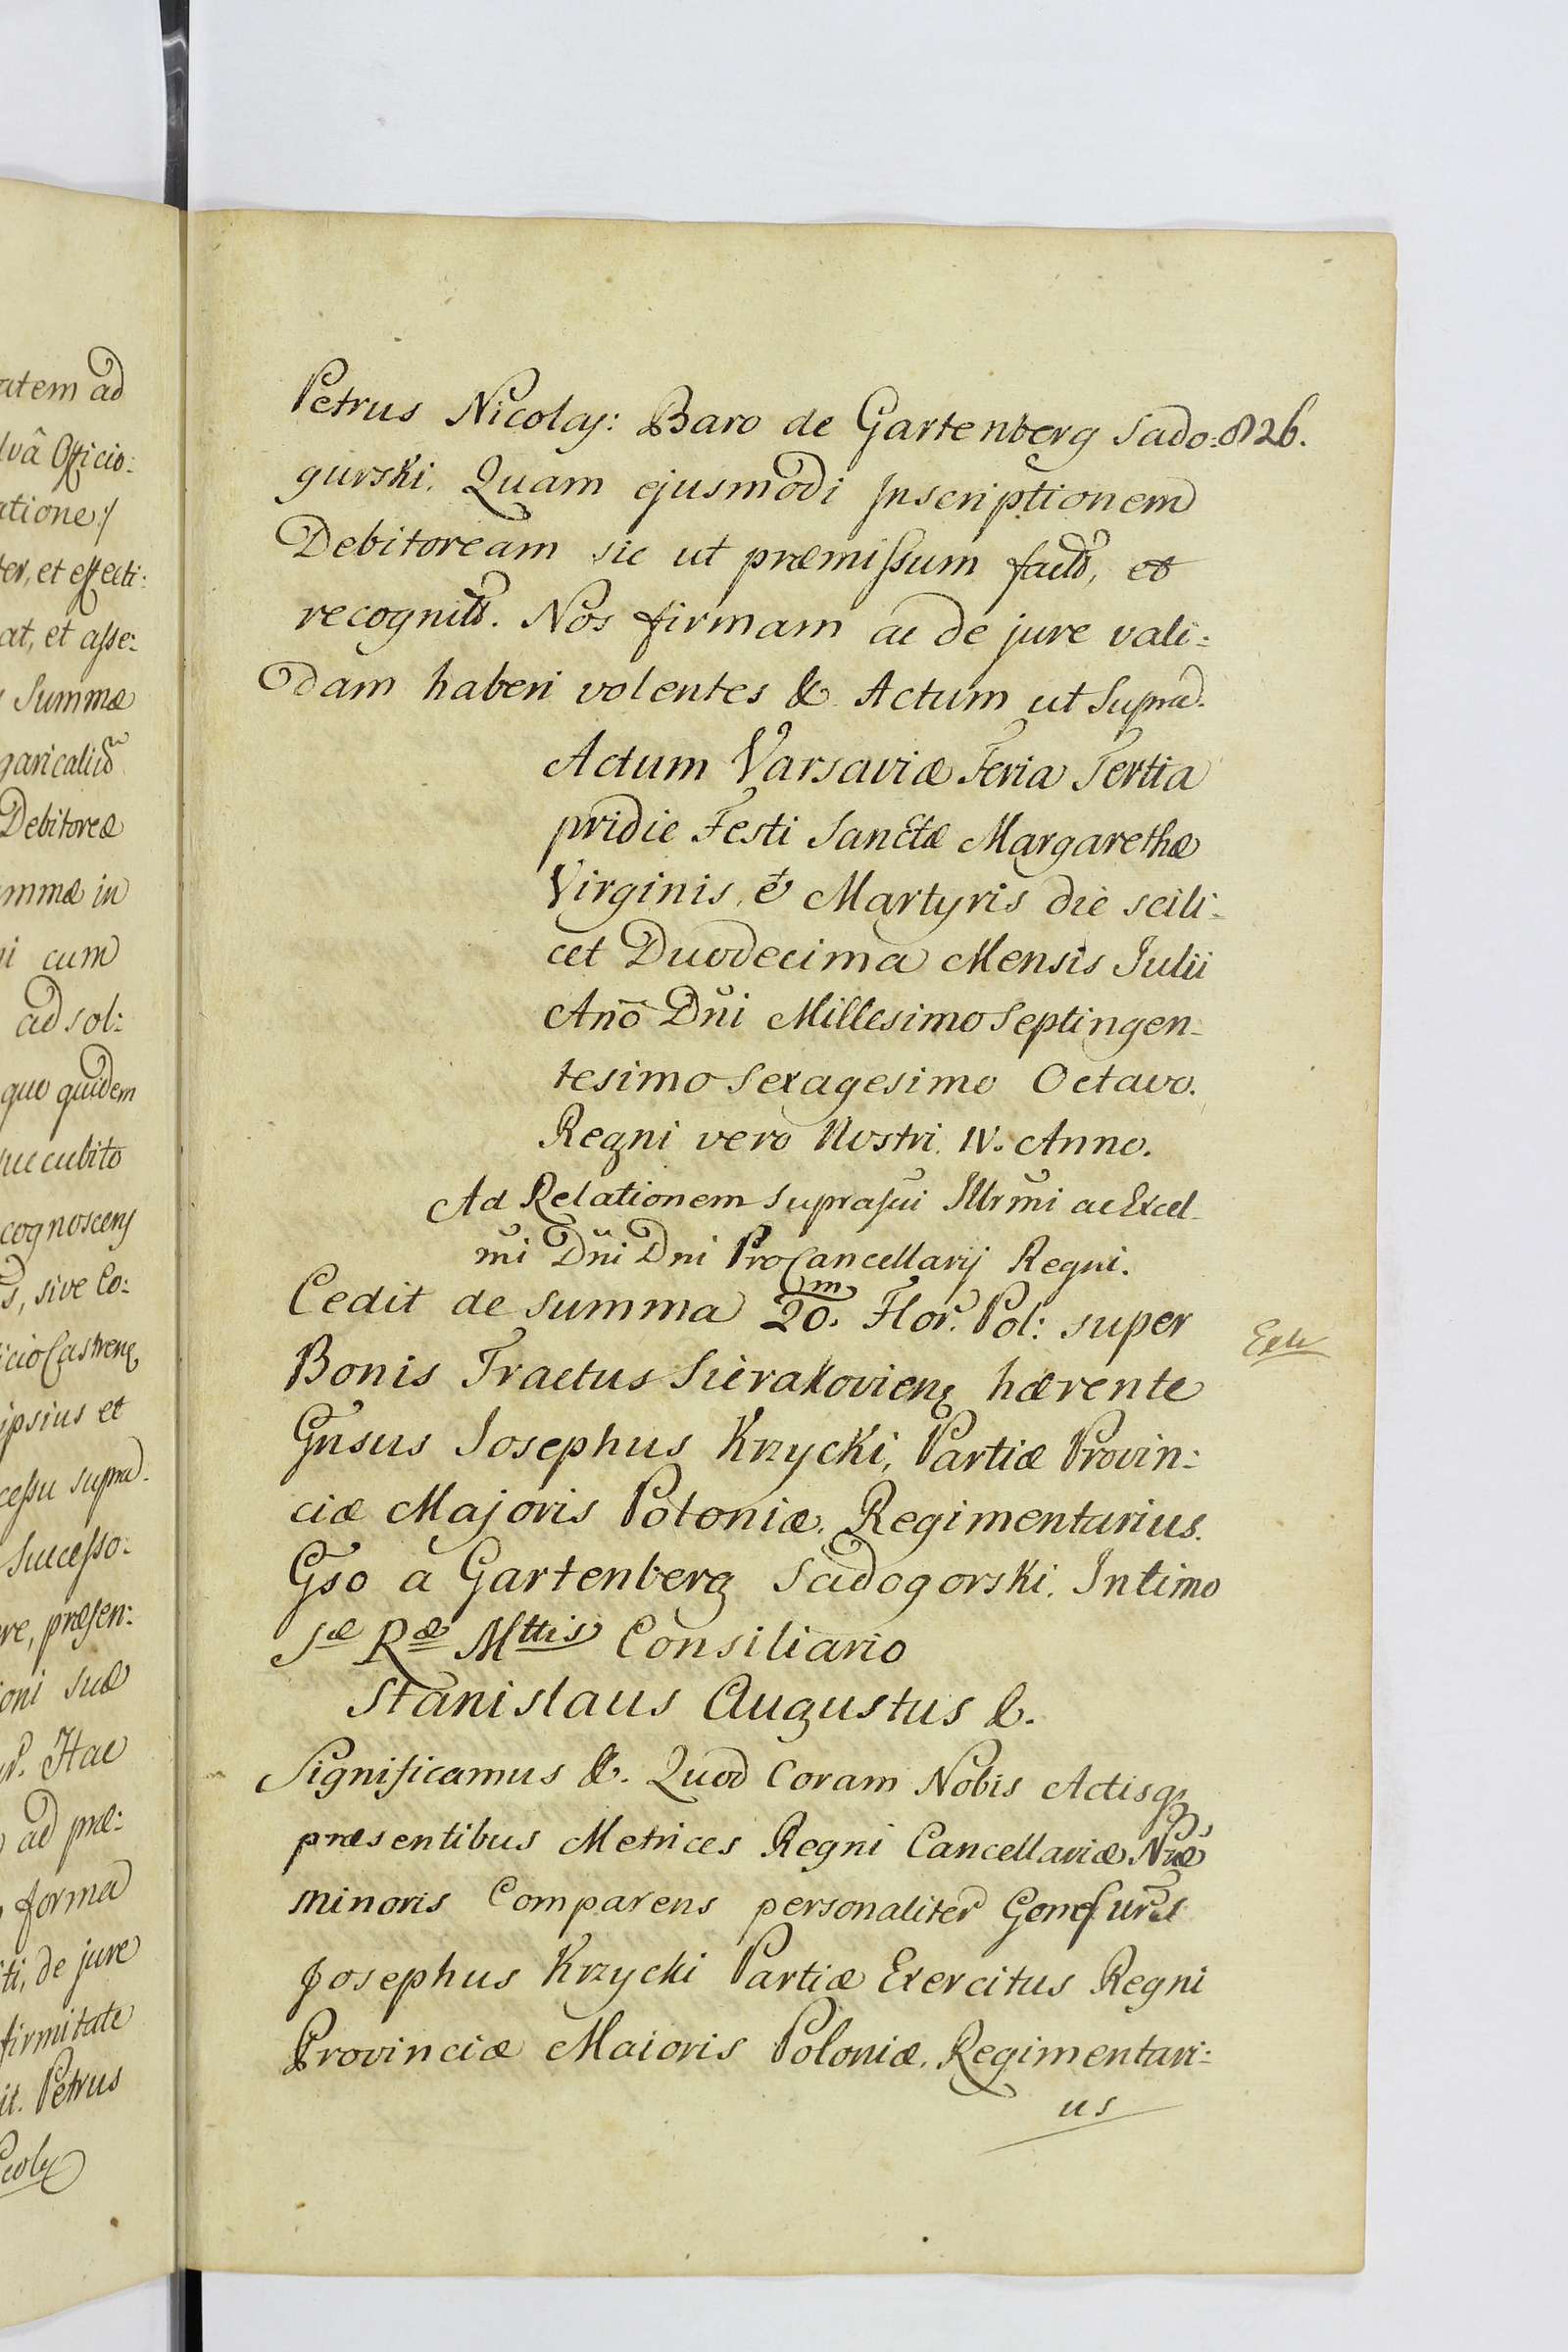 atem ad
lvâ Officio:
atione:/
ter, et effecti:
at, et asse:
Summæ
garicaliũ
Debitoreæ
ummæ in
ni cum
ad sol:
quo quidem
succubito
cognoscens
s, sive Co:
icio Castreng
ipsius et
cessu supra
Successo:
re, præsen:
ioni suæ
Hac
ad præ:
forma
iti, de jure
firmitate
it. Petrus
Petrus Nicolaj: Baro de Gartenberg Sado: 826.
gurski. Quam ejusmodi Inscriptionem
Debitoream sic ut præmissum factũ, et
recognitũ. Nos firmam ac de jure vali:
dam haberi volentes &. Actum ut Supra.
Actum Varsaviæ Feria Tertia
pridie Festi Sanctæ Margarethæ
Virginis, et Martyris die scili:
cet Duodecima Mensis Julii
Anõ Dñi Millesimo Septingen:
tesimo Sexagesimo Octavo.
Regni vero Nostri IV. Anno.
Ad Relationem suprascui Illrmi ac Excel
mi Dñi Dni ProCancellarij Regni.
Cedit de summa 20.m Flor. Pol: super
Bonis Tractus Sierakovieng hærente
Gnsus Josephus Krzycki, Partiæ Provin:
ciæ Majoris Poloniæ. Regimentarius.
Gso a Gartenberg Sadogorski. Intimo
Sæ Ræ Mttis Consiliario
Stanislaus Augustus &.
Significamus &. Quod Coram Nobis Actisq
præsentibus Metrices Regni Cancellariæ Nræ
minoris Comparens personaliter
Josephus Krzycki Partiæ Exercitus Regni
Provinciæ Maioris Poloniæ. Regimentari:
us